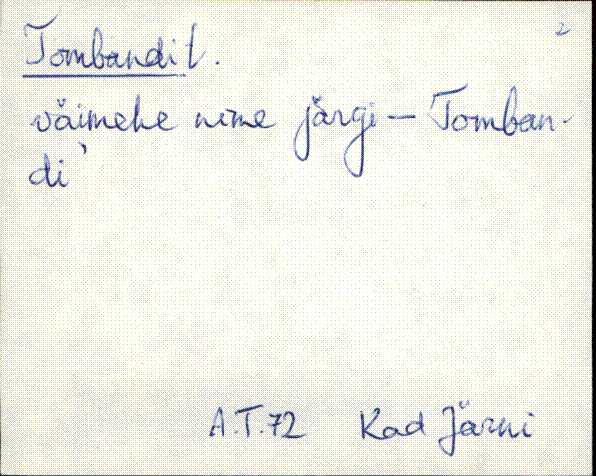 2
Tombandil.
väimehe nime järgi – Tomban-
di`
A.T.72 Kad Järni